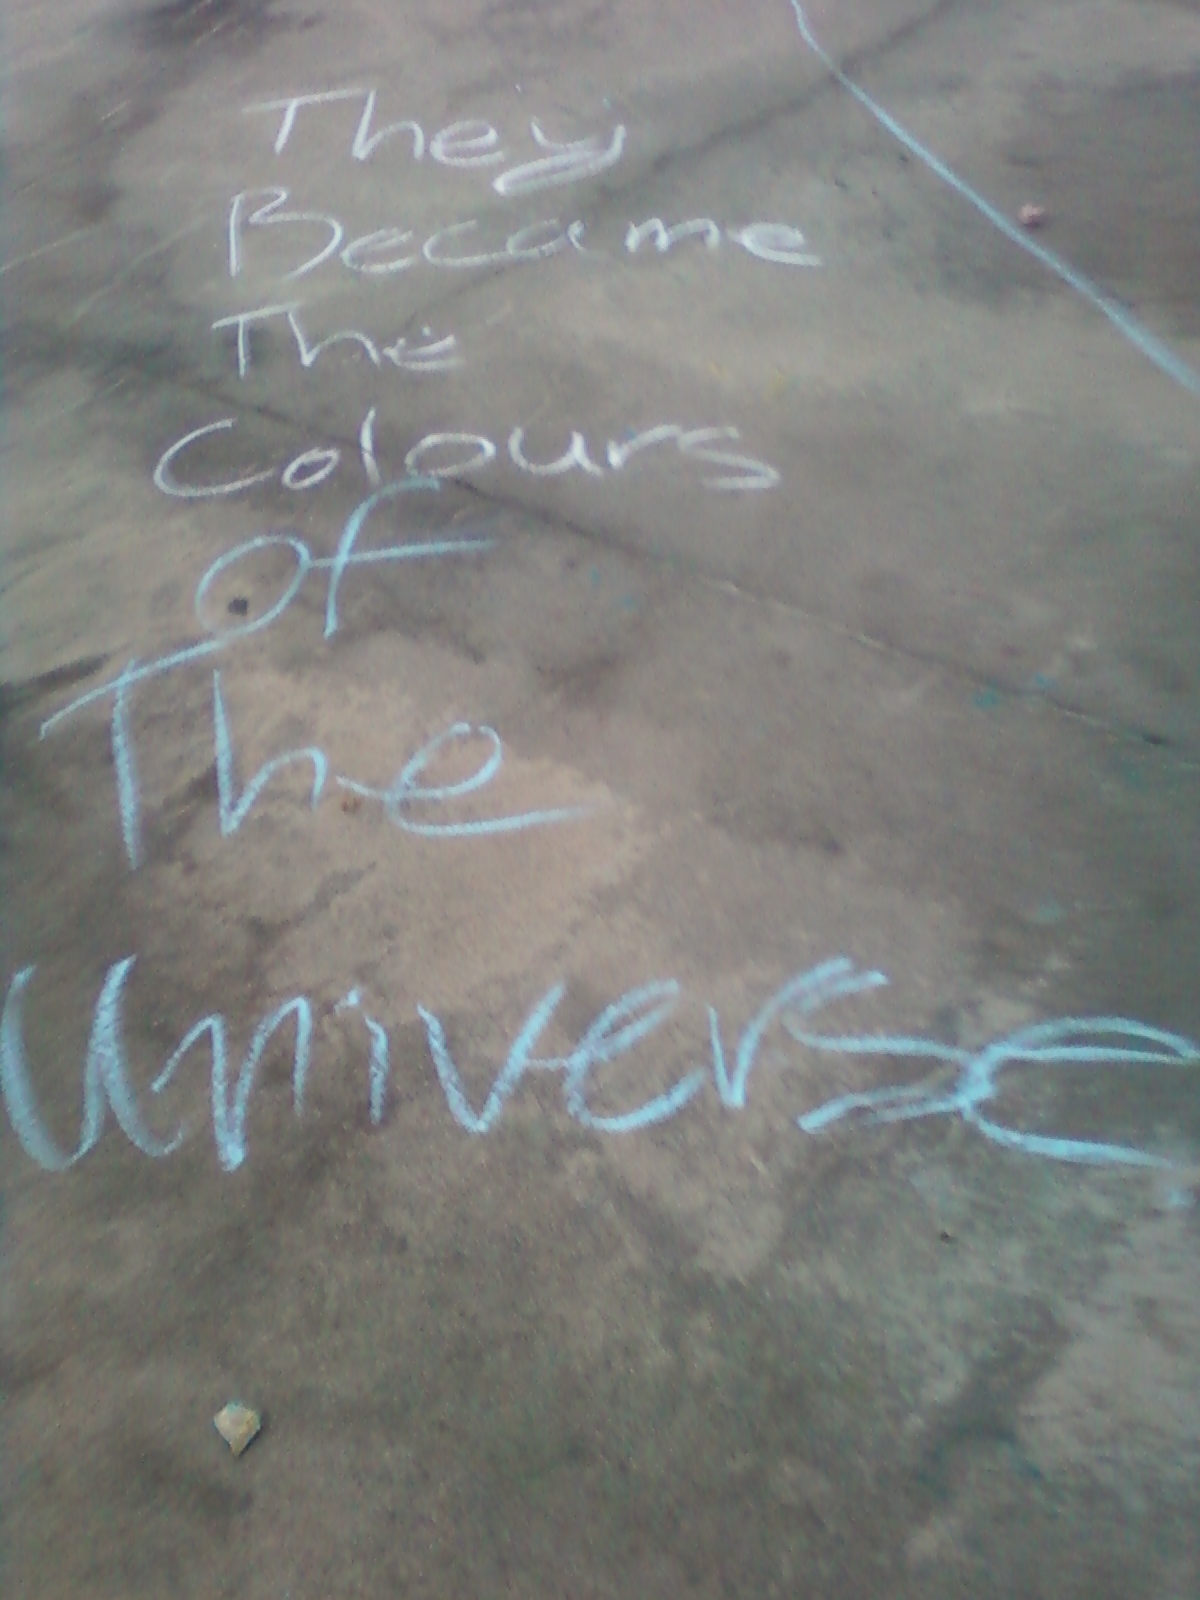 They
Became
The
Colours
of
The
Universe